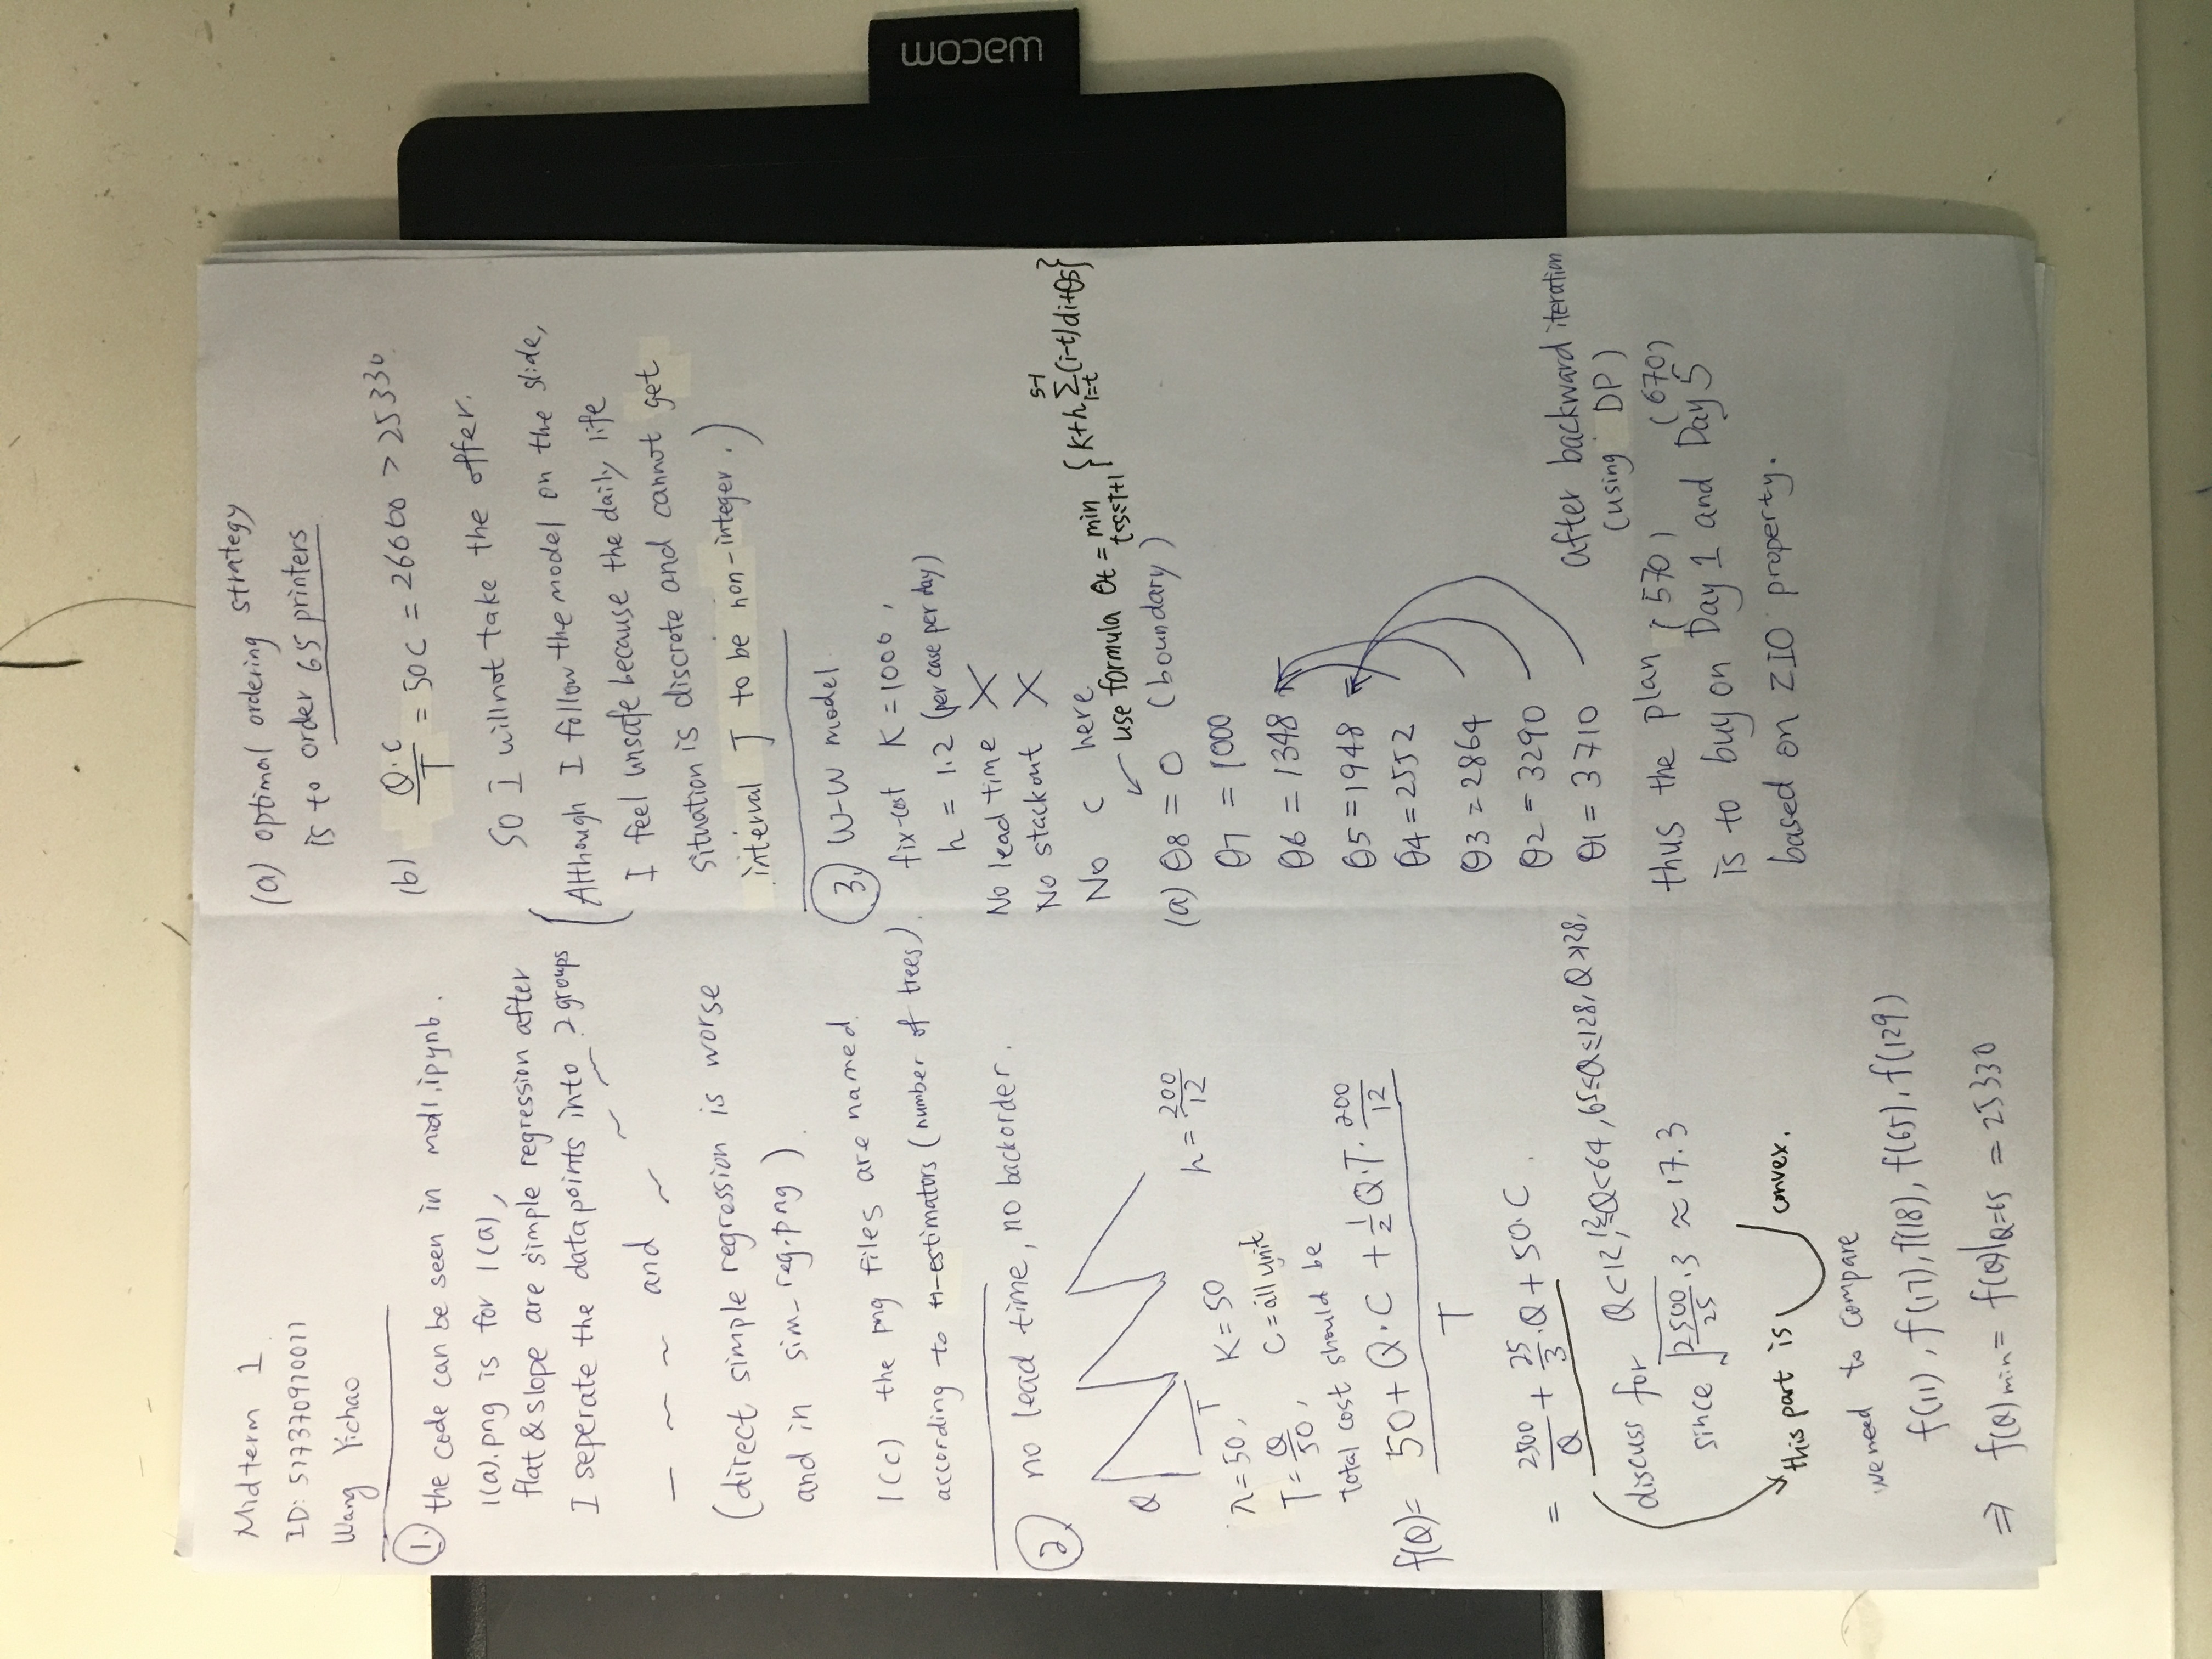 Midterm 1
ID: 517370910011
Wang Yichao
1. the code can be seen in mid1.ipynb.
1(a).png is for 1(a),
flat & slope are simple regression after
I seperate the data points into 2 groups
— ~ ~ ~ and ~ ~ ~ ~
(direct simple regression is worse
and in sim_reg.png).
1(c) the png files are named
according to n-estimators (number of trees).
2. no lead time, no backorder.
Q
T
h = 200/12
λ = 50, K = 50
T = Q/50, C = all unit
total cost should be
f(Q) = (50 + Q·C + 1/2 Q·T·200/12) / T
= 2500/Q + 25/3·Q + 50·C.
discuss for Q<12, 12≤Q<64, 65≤Q≤128, Q>128,
since √(2500/25·3) ≈ 17.3
this part is convex.
we need to compare
f(11), f(17), f(18), f(65), f(129)
⇒ f(Q)min = f(Q)|Q=65 = 25330
(a) optimal ordering strategy
is to order 65 printers
(b) Q·C/T = 50C = 26600 > 25330
so I will not take the offer.
(Although I follow the model on the slide,
I feel unsafe because the daily life
situation is discrete and cannot get
interval T to be non-integer.)
3. W-W model.
fix-cost K = 1000,
h = 1.2 (per case per day)
No lead time X
No stackout X
No C here
use formula θt = min t<s≤T+1 {K+h s-1Σi=t (i-t)di+θs}
(a) θ8 = 0 (boundary)
θ7 = 1000
θ6 = 1348
θ5 = 1948
θ4 = 2552
θ3 = 2864
θ2 = 3290
θ1 = 3710
after backward iteration
(using DP)
thus the plan (570) (670)
is to buy on Day 1 and Day 5
based on ZIO property.
wacom